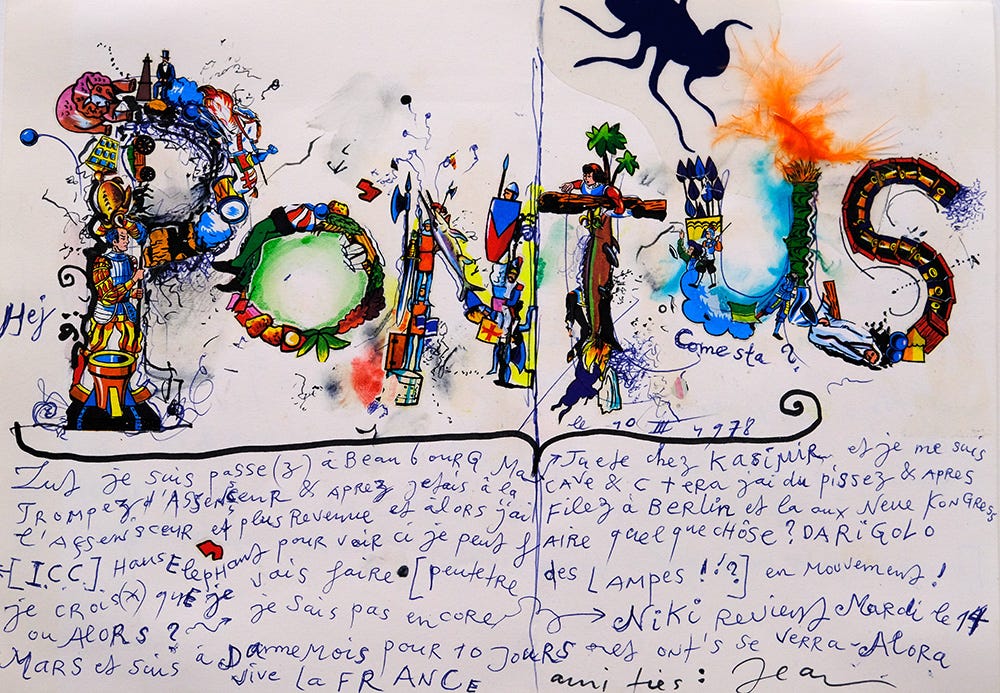 PONTUS
Hej
Come sta?
le 10 III 1978
Zut je suis passe(z) à BeaubourG Ma ↗Juete chez KASIMIR et je me suis
TROMPEZ d'AssENSEUR & APREZ jetais à la CAVE & C tERA jai du pissez & APRES
l'AssENSCEUR et plus Revenue et alors jai FILEZ à BERLIN et la aux Neue KONGRESS
[I.C.C.] HansElepHant pour voir ci je peut fAIRE quelqueCHÔSE? DARiGOLO
je CROIS(X) quE je vais faire [peutetre des LAMPES !!?] en mouvement!
ou ALORS? je sais pas encore → Niki Revient Mardi le 14
MARS et suis à DARMEMOIS pour 10 JOURS et ont's se VERRA-ALORA
Vive la FRANCE amities: Jean